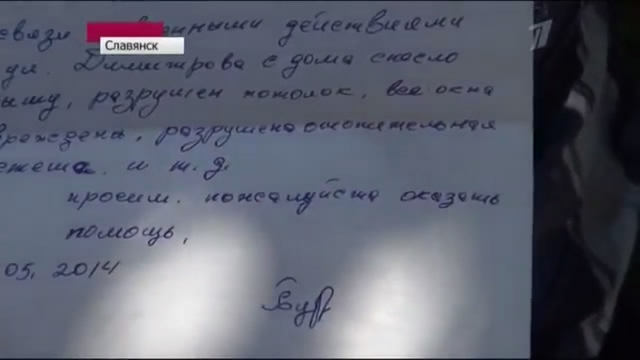 Славянск
связи военными действиями
ул. Димитрова с дома снесло
ышу, разрушен потолок, все окна
враждены, разрушена отопительная
и т.д.
просим. пожалуйста оказать
помощь,
05. 2014